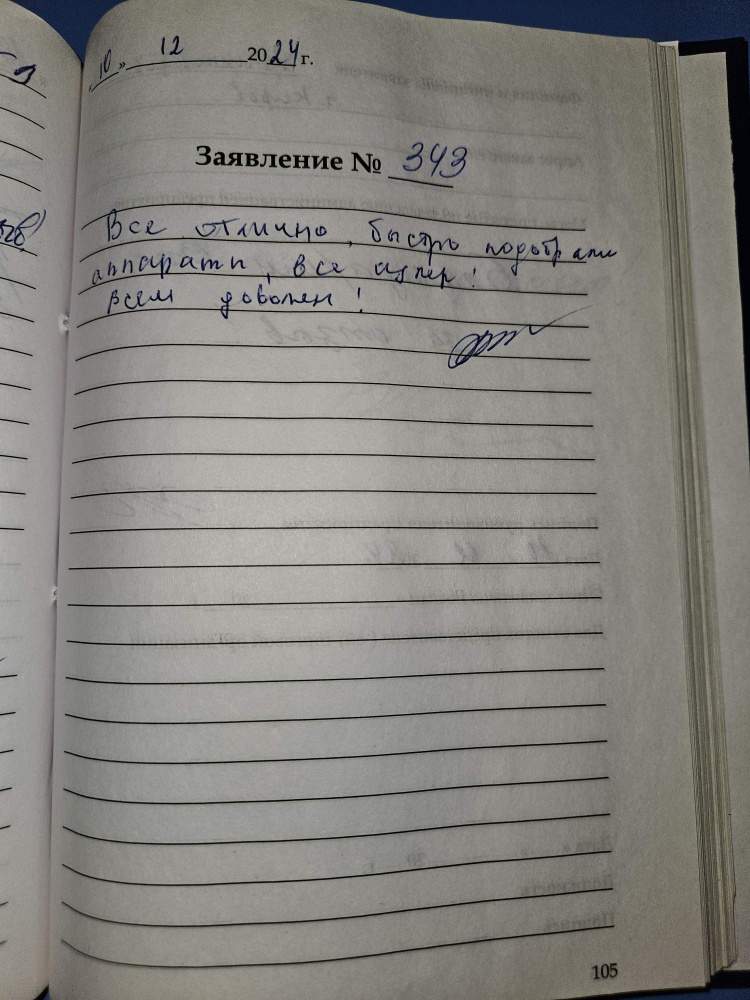 10 » 12 2024 г.
Заявление № 343
Все отлично, быстро подобрали
аппараты, все супер!
Всем доволен!
105